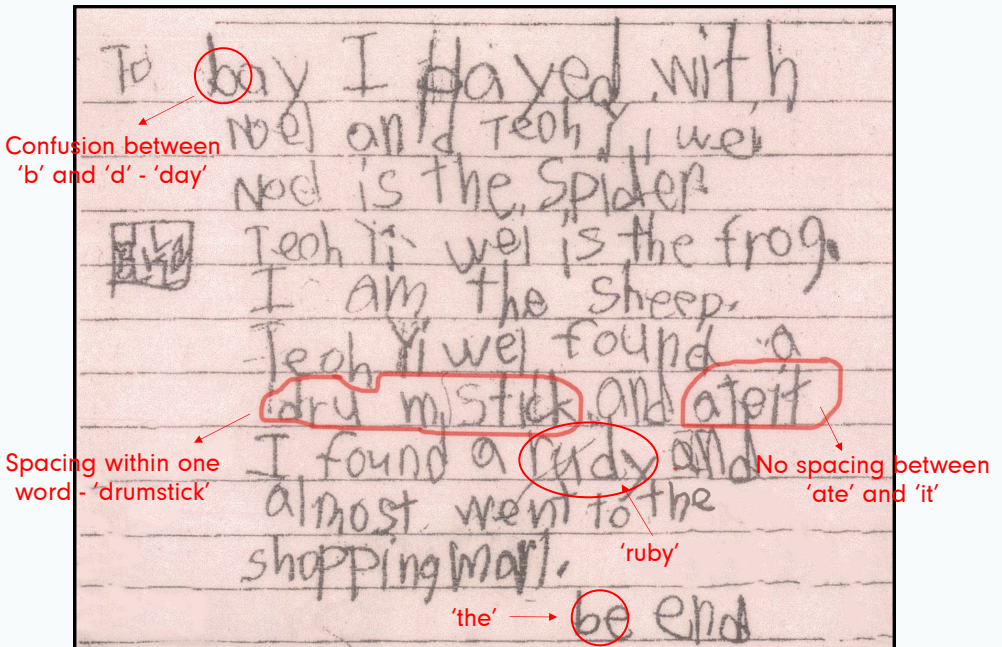 To bay I played with
Noel and Teoh Yi wei
Noel is the Spider
Teoh Yi wei is the frog.
I am the sheep.
Teoh Yi wei found a
dry m stick and ateit
I found a rudy and
almost went to the
shopping marl.
be end
Confusion between
'b' and 'd' - 'day'
Spacing within one
word - 'drumstick'
No spacing between
'ate' and 'it'
'ruby'
'the'